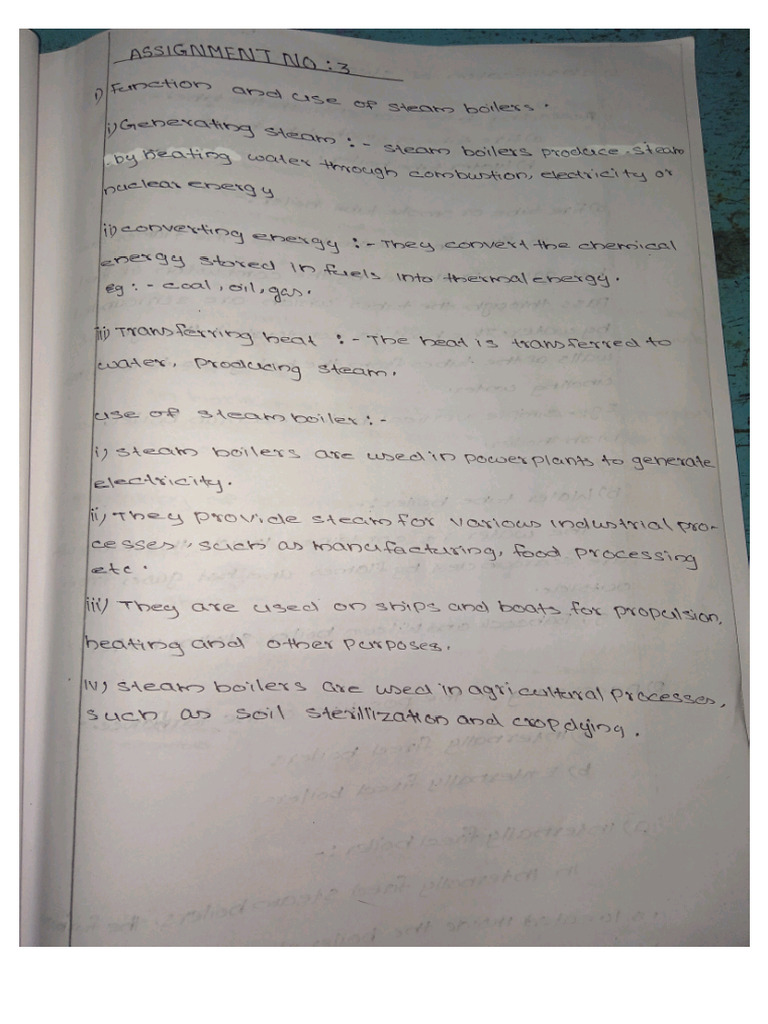 ASSIGNMENT NO : 3
1) Function and use of steam boilers.
i) Generating steam : - steam boilers produce steam
by heating water through combustion, electricity or
nuclear energy
ii) converting energy : - They convert the chemical
energy stored in fuels into thermal energy.
eg : - coal, oil, gas.
iii) Transferring heat : - The heat is transferred to
water, producing steam.
use of steam boiler : -
i) steam boilers are used in power plants to generate
electricity.
ii) They provide steam for various industrial pro-
cesses, such as manufacturing, food processing
etc.
iii) They are used on ships and boats for propulsion,
heating and other purposes.
iv) steam boilers are used in agricultural processes,
such as soil sterillization and crop dying.